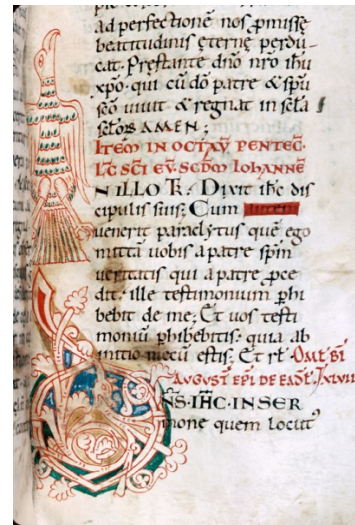 ad perfectionē nos p̄misse
beatitudinis eterne perdu-
cat. Prestante dn̄o nr̄o ihu
xp̄o. qui cū dō patre & sp̄u
sc̄o uiuit & regnat in sc̄la
sc̄loꝝ AMEN;
ITEM IN OCTAV̄ PENTEC̄.
LC̄ SC̄I EV̄. SECD̄M IOHANNĒ
N ILLO T̄R. Dixit ihc̄ dis
cipulis suis; Cum autem
uenerit paraclytus quē ego
mittā uobis a patre sp̄m
ueritatis qui a patre p̄ce
dit. ille testimonium phi
bebit de me; Et uos testi
moniū phibebitis; quia ab
initio mecū estis; Et rl̄. OML̄ BĪ
AUGUSTĪ EP̄I DE EADĒ. L.
NS. IH̄C. IN SER
mone quem locut᾽